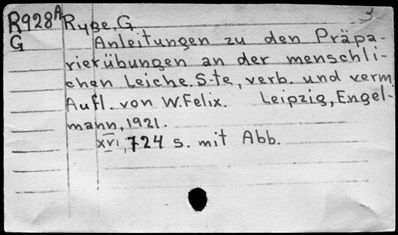 R928A Ruge, G 3
G Anleitungen zu den Präpa-
rierübungen an der menschli-
chen Leiche. 5-te, verb. und verm.
Aufl. von W. Felix. Leipzig, Engel-
mann, 1921.
XVI, 724 S. mit Abb.